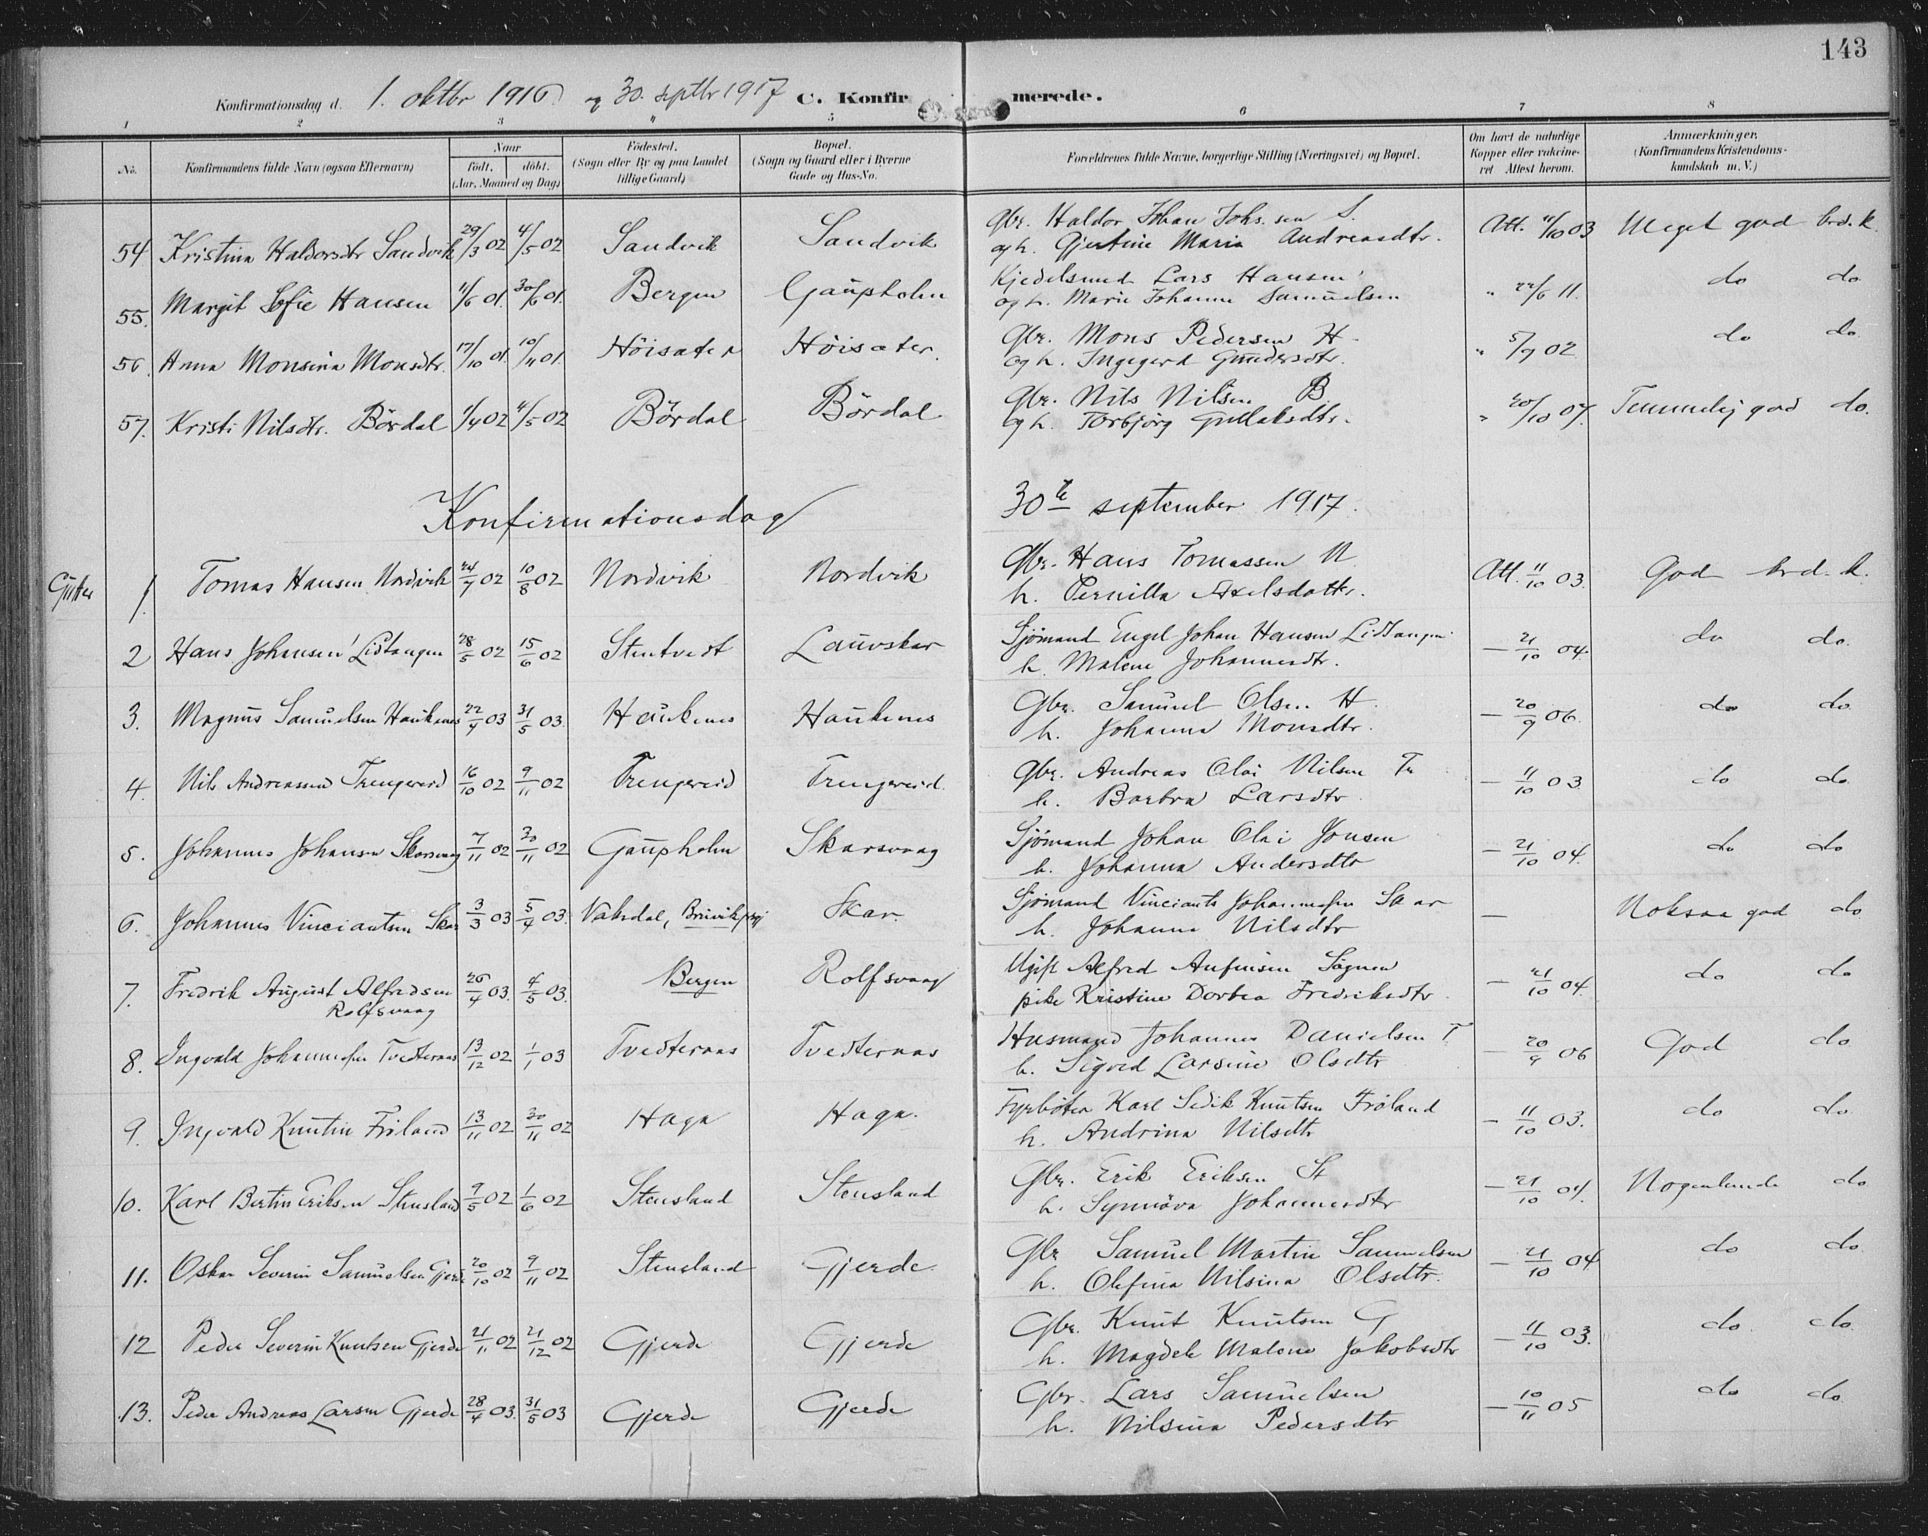 143
Konfirmationsdag d. 1. oktbr 1916 og 30. septbr 1917 C. Konfirmerede.
1 2 3 " 5 6 7 8
No. Konfirmandens fulde Navn (ogsaa Efternavn) Naar født, døbt. (Aar, Maaned og Dag) Fødested. (Sogn eller By og paa Landet tillige Gaard) Bopæl. (Sogn og Gaard eller i Byerne Gade og Hus-No. Forældrenes fulde Navne, borgerlige Stilling (Næringsvei) og Bopæl. Om havt de naturlige Kopper eller vakcineret. Attest herom. Anmærkninger. (Konfirmandens Kristendomskundskab m. V.)
54 Kristina Haldorsdtr Sandvik 29/3 02 4/5 02 Sandvik Sandvik Gbr. Haldor Johan Johs.sen S. Att. 11/10 03 Meget god krd. k.
og h. Gjertine Maria Andreasdtr.
55. Margit Sofie Hansen 11/6 01. 30/6 01. Bergen Gaupholm Kjedelsmed Lars Hansen " 22/6 11. do do
og h. Marie Johanne Samuelsen
56. Anna Monsina Monsdtr. 17/10 01. 10/11 01. Höisæter Höisæter. Gbr. Mons Pedersen H. " 5/7 02 do do
og h. Ingegerd Gundersdtr.
57. Kristi Nilsdtr. Bördal 1/4 02 4/5 02 Bördal Bördal Gbr. Nils Nilsen B " 20/10 07. Temmelig god do.
og h. Torbjörg Gullaksdtr.
Konfirmationsdag 30te september 1917.
Gutter 1. Tomas Hansen Nordvik 24/7 02 10/8 02 Nordvik Nordvik Gbr. Hans Tomassen N. Att. 11/10 03. God krd. k.
h. Pernilla Axelsdattr.
2 Hans Johansen Listangen 28/5 02 15/6 02 Stentvedt Lauvskar Sjömand Engel Johan Hansen Listangen — 21/10 04. do do.
h. Malene Johannesdtr.
3. Magnus Samuelsen Haukenes 22/4 03 31/5 03. Haukenes Haukenes Gbr. Samuel Olsen H. — 20/9 06. do do.
h. Johanna Monsdtr.
4. Nils Andreassen Trengereid 16/10 02 9/11 02 Trengereid Trengereid. Gbr. Andreas Olai Nilsen Tr — 11/10 03 do do
h. Barbra Larsdtr
5. Johannes Johansen Skarsvaag 7/11 02 30/11 02 Gaupholm Skarsvaag Sjömand Johan Olai Jonsen — 21/10 04. do do
h. Johanna Andersdtr
6. Johannes Vinciantsen Skar 3/3 03 5/4 03. Vaksdal, Bruvik prgj Skar. Sjömand Vinciants Johannessen Skar — Noksaa god do
h. Johanna Nilsdtr
7. Fredrik August Alfredsen 26/4 03. 4/5 03. Bergen Rolfsvaag Ugift Alfred Anfinsen Sognen — 21/10 04. do do
Rolfsvaag pike Kristine Dorbea Fredriksdtr
8. Ingvald Johannessen Tvedternæs 13/12 02 1/1 03 Tvedternæs Tvedternæs Husmand Johannes Danielsen T. — 20/9 06 God do
h. Sigvid Larsine Olsdtr
9. Ingvald Knutsen Fröland 13/11 02 30/11 02 Haga Haga. Fyrböter Karl Sedik Knutsen Fröland — 11/10 03. do do
h. Andrina Nilsdtr
10. Karl Bertin Eriksen Stensland 9/5 02 1/6 02 Stensland Stensland Gbr. Erik Eriksen St — 21/10 04. Nogenlunde do
h. Synnöva Johannesdtr
11. Oskar Severin Samuelsen Gjerde 20/10 02 9/11 02 Stensland Gjerde Gbr Samuel Martin Samuelsen — 21/10 04 do do
h. Olefina Nilsina Olsdtr.
12 Peder Severin Knutsen Gjerde 21/11 02 21/12 02 Gjerde Gjerde Gbr. Knut Knutsen G — 11/10 03. do do
h. Magdela Malene Jakobsdtr
13. Peder Andreas Larsen Gjerde 28/4 03. 31/5 03 Gjerde Gjerde Gbr. Lars Samuelsen — 10/11 05 do do
h. Nilsina Pedersdtr